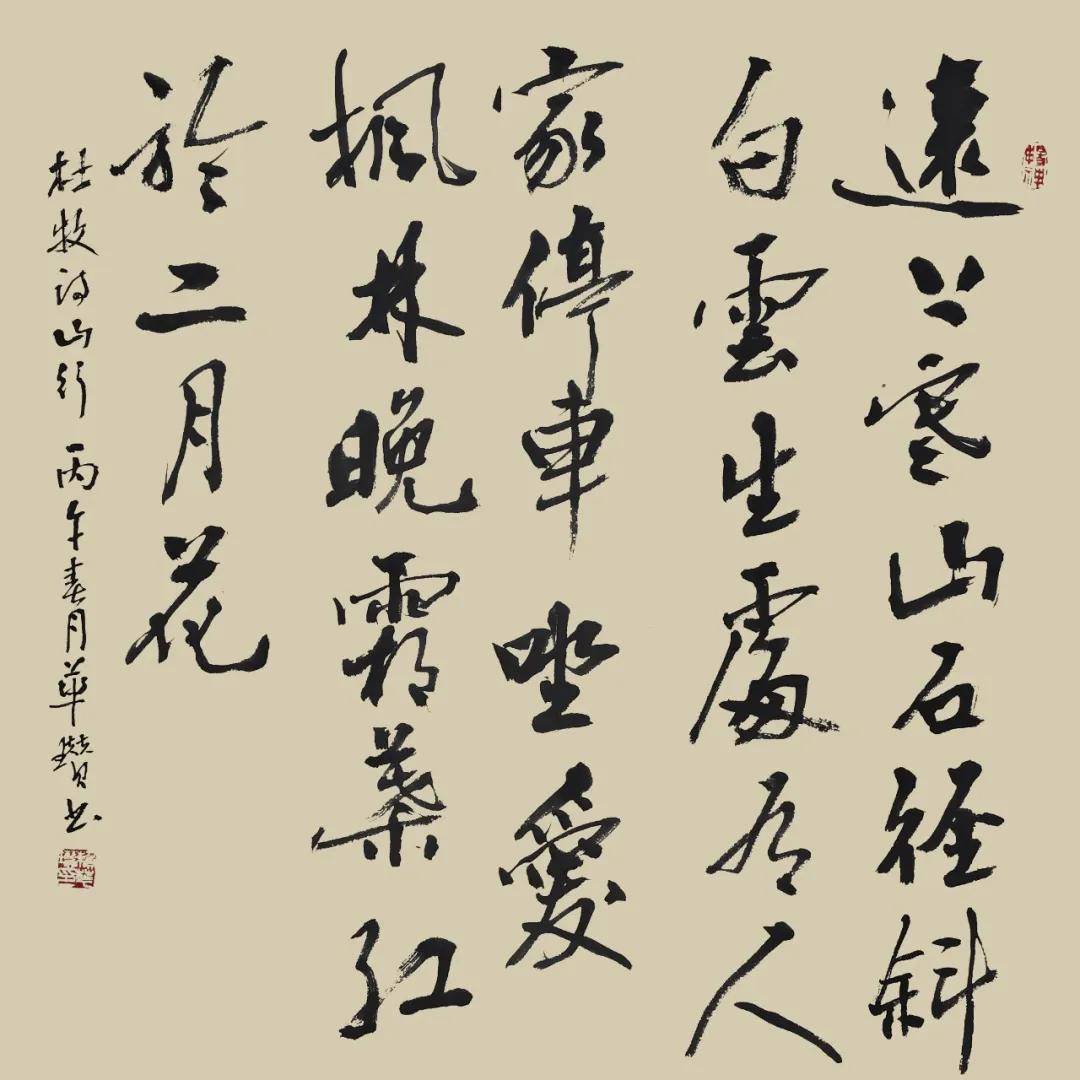 遠上寒山石徑斜
白雲生處有人
家停車坐愛
楓林晚霜葉紅
於二月花
杜牧诗山行 丙午春月華瓚书